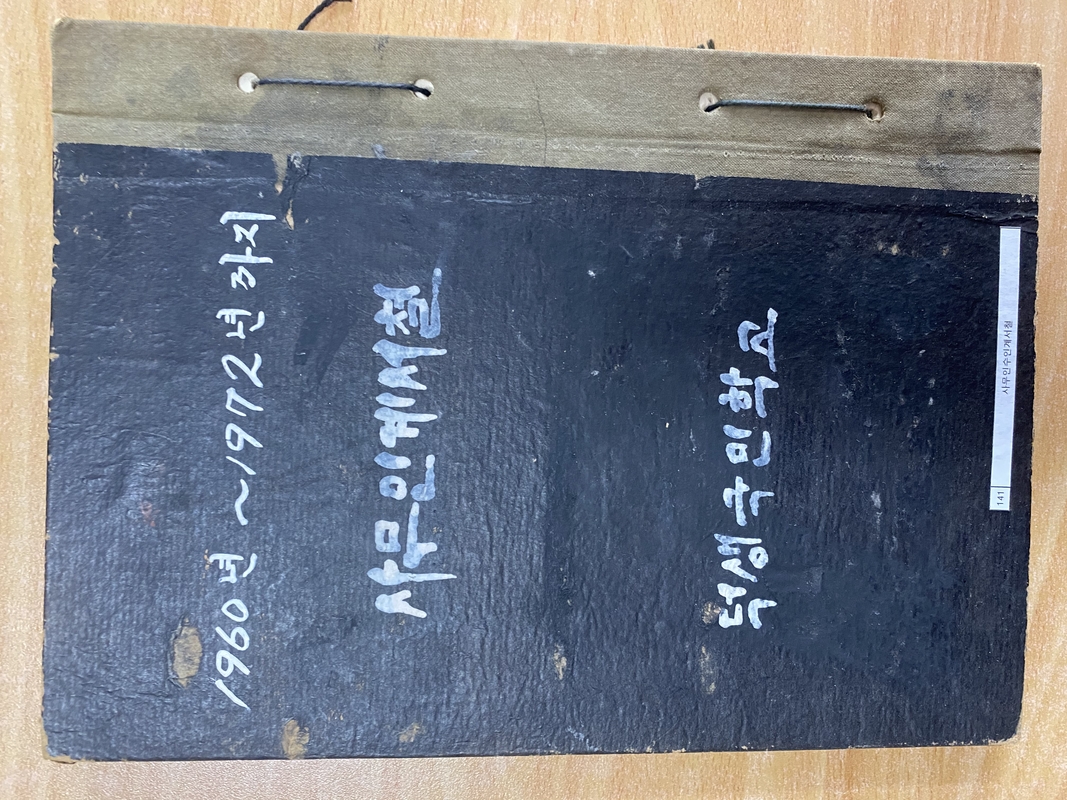 1960년 ~ 1972년 까지
사무인계서철
덕생국민학교
141 사무인수인계서철